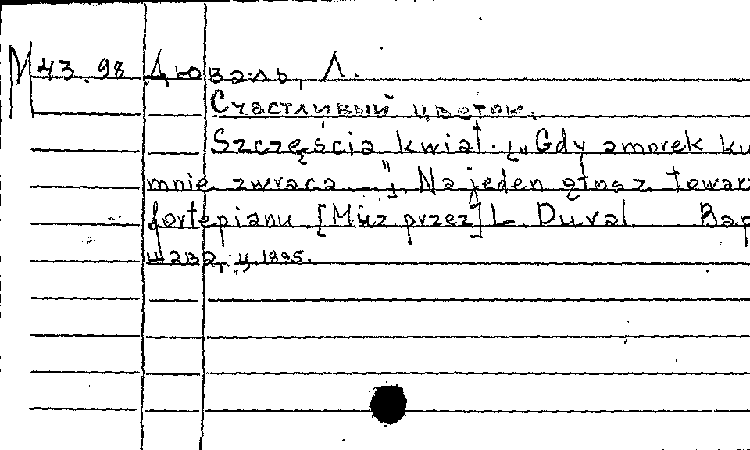 М 43.98 Дюваль, Л.
Счастливый цветок.
Szczęścia kwiat. [„Gdy amorek ku
mnie zwraca ...”]. Na jeden głos z towar
fortepianu. [Muz. przez] L. Duval. Вар
шава, ц. 1895.